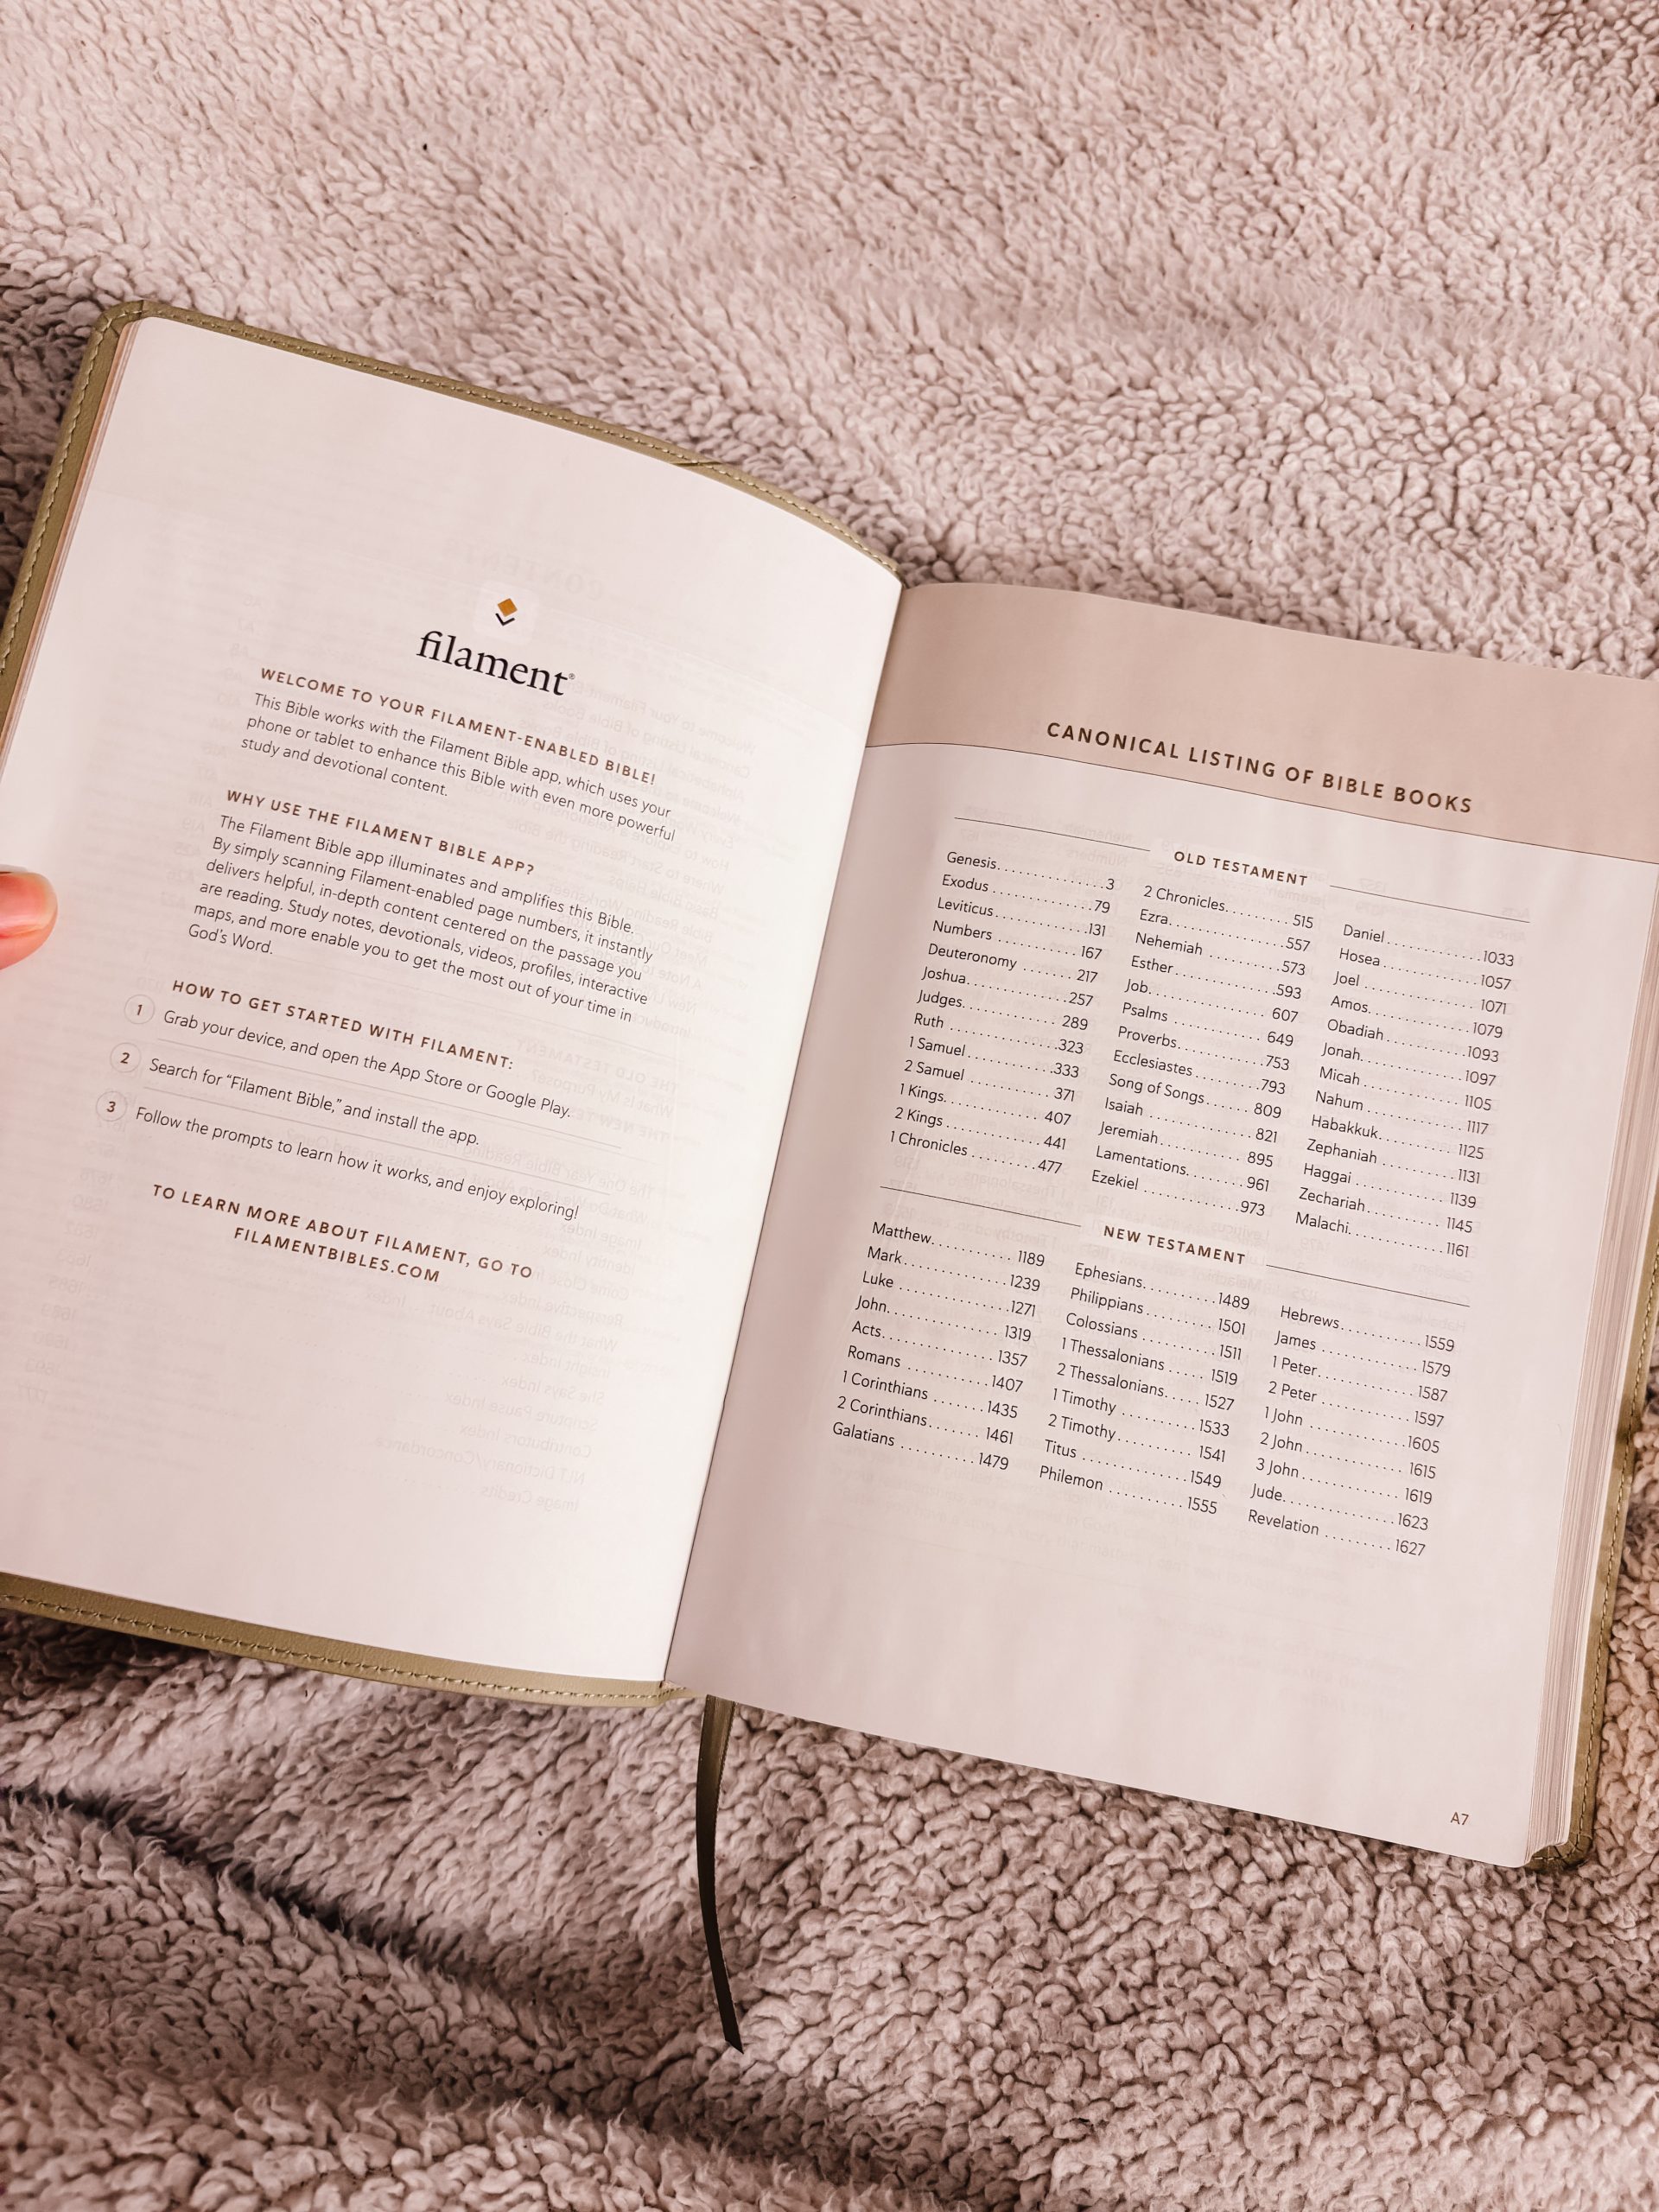 filament®
WELCOME TO YOUR FILAMENT-ENABLED BIBLE!
This Bible works with the Filament Bible app, which uses your
phone or tablet to enhance this Bible with even more powerful
study and devotional content.
WHY USE THE FILAMENT BIBLE APP?
The Filament Bible app illuminates and amplifies this Bible.
By simply scanning Filament-enabled page numbers, it instantly
delivers helpful, in-depth content centered on the passage you
are reading. Study notes, devotionals, videos, profiles, interactive
maps, and more enable you to get the most out of your time in
God's Word.
HOW TO GET STARTED WITH FILAMENT:
1 Grab your device, and open the App Store or Google Play.
2 Search for "Filament Bible," and install the app.
3 Follow the prompts to learn how it works, and enjoy exploring!
TO LEARN MORE ABOUT FILAMENT, GO TO
FILAMENTBIBLES.COM
CANONICAL LISTING OF BIBLE BOOKS
OLD TESTAMENT
Genesis.................3
Exodus................79
Leviticus..............131
Numbers............167
Deuteronomy.......217
Joshua...............257
Judges...............289
Ruth..................323
1 Samuel.............333
2 Samuel.............371
1 Kings...............407
2 Kings...............441
1 Chronicles.........477
2 Chronicles.........515
Ezra..................557
Nehemiah............573
Esther................593
Job...................607
Psalms...............649
Proverbs.............753
Ecclesiastes.........793
Song of Songs.......809
Isaiah................821
Jeremiah.............895
Lamentations........961
Ezekiel...............973
Daniel...............1033
Hosea...............1057
Joel.................1071
Amos................1079
Obadiah.............1093
Jonah...............1097
Micah...............1105
Nahum..............1117
Habakkuk...........1125
Zephaniah...........1131
Haggai..............1139
Zechariah...........1145
Malachi.............1161
NEW TESTAMENT
Matthew............1189
Mark................1239
Luke................1271
John................1319
Acts................1357
Romans............1407
1 Corinthians.......1435
2 Corinthians.......1461
Galatians...........1479
Ephesians..........1489
Philippians.........1501
Colossians..........1511
1 Thessalonians.....1519
2 Thessalonians.....1527
1 Timothy...........1533
2 Timothy...........1541
Titus................1549
Philemon...........1555
Hebrews............1559
James..............1579
1 Peter.............1587
2 Peter.............1597
1 John..............1605
2 John..............1615
3 John..............1619
Jude................1623
Revelation..........1627
A7